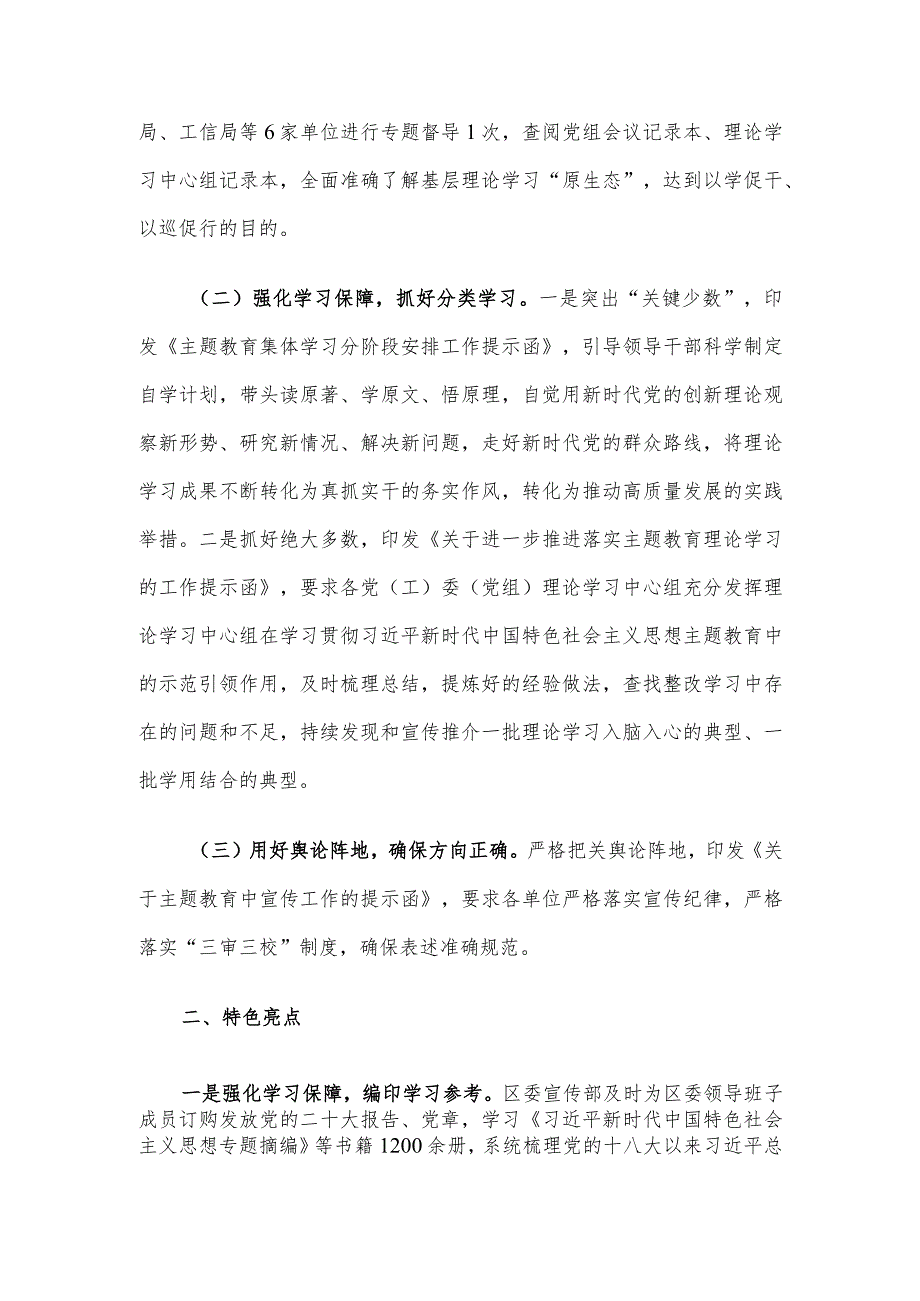 局、工信局等6家单位进行专题督导1次，查阅党组会议记录本、理论学
习中心组记录本，全面准确了解基层理论学习“原生态”，达到以学促干、
以巡促行的目的。
（二）强化学习保障，抓好分类学习。一是突出“关键少数”，印
发《主题教育集体学习分阶段安排工作提示函》，引导领导干部科学制定
自学计划，带头读原著、学原文、悟原理，自觉用新时代党的创新理论观
察新形势、研究新情况、解决新问题，走好新时代党的群众路线，将理论
学习成果不断转化为真抓实干的务实作风，转化为推动高质量发展的实践
举措。二是抓好绝大多数，印发《关于进一步推进落实主题教育理论学习
的工作提示函》，要求各党（工）委（党组）理论学习中心组充分发挥理
论学习中心组在学习贯彻习近平新时代中国特色社会主义思想主题教育中
的示范引领作用，及时梳理总结，提炼好的经验做法，查找整改学习中存
在的问题和不足，持续发现和宣传推介一批理论学习入脑入心的典型、一
批学用结合的典型。
（三）用好舆论阵地，确保方向正确。严格把关舆论阵地，印发《关
于主题教育中宣传工作的提示函》，要求各单位严格落实宣传纪律，严格
落实“三审三校”制度，确保表述准确规范。
二、特色亮点
一是强化学习保障，编印学习参考。区委宣传部及时为区委领导班子
成员订购发放党的二十大报告、党章，学习《习近平新时代中国特色社会
主义思想专题摘编》等书籍1200余册，系统梳理党的十八大以来习近平总